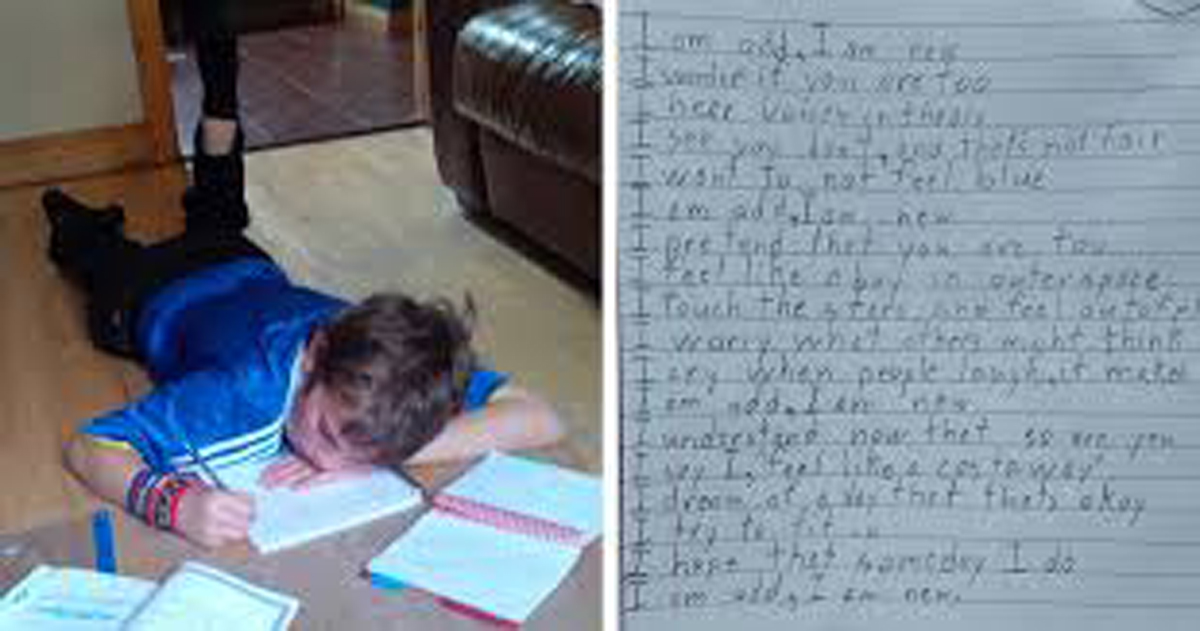 I am odd, I am new
I wonder if you are too
I hear voices in the air
I see you don't, and thats not fair
I want to not feel blue
I am odd, I am new
I pretend that you are too
I feel like a boy in outerspace
I touch the stars and feel out of
I worry what others might think
I cry when people laugh, it makes
I am odd, I am new
I understand now that so are you
I say I, feel like a castaway"
I dream of a day that thats okay
I try to fit in
I hope that someday I do
I am odd, I am new.